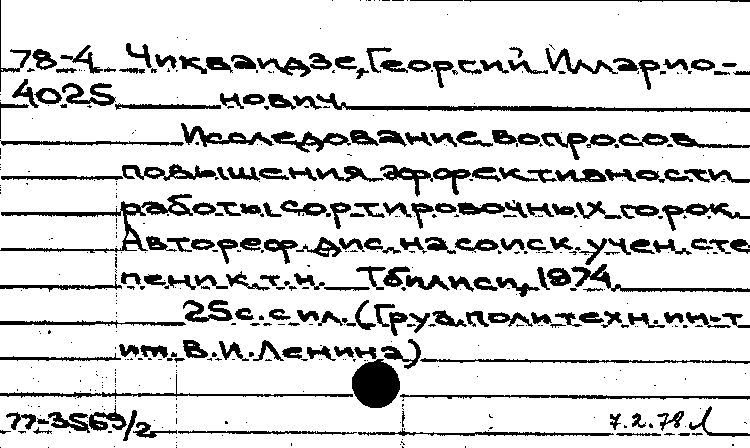 78-4 Чикваидзе, Георгий Илларио-
4025 нович.
Исследование вопросов
повышения эффективности
работы сортировочных горок.
Автореф. дис. на соиск. учен. сте
пени к.т.н. Тбилиси, 1974.
25 с. с ил. (Груз. политехн. ин-т
им. В.И. Ленина)
77-3569/2 7.2.78